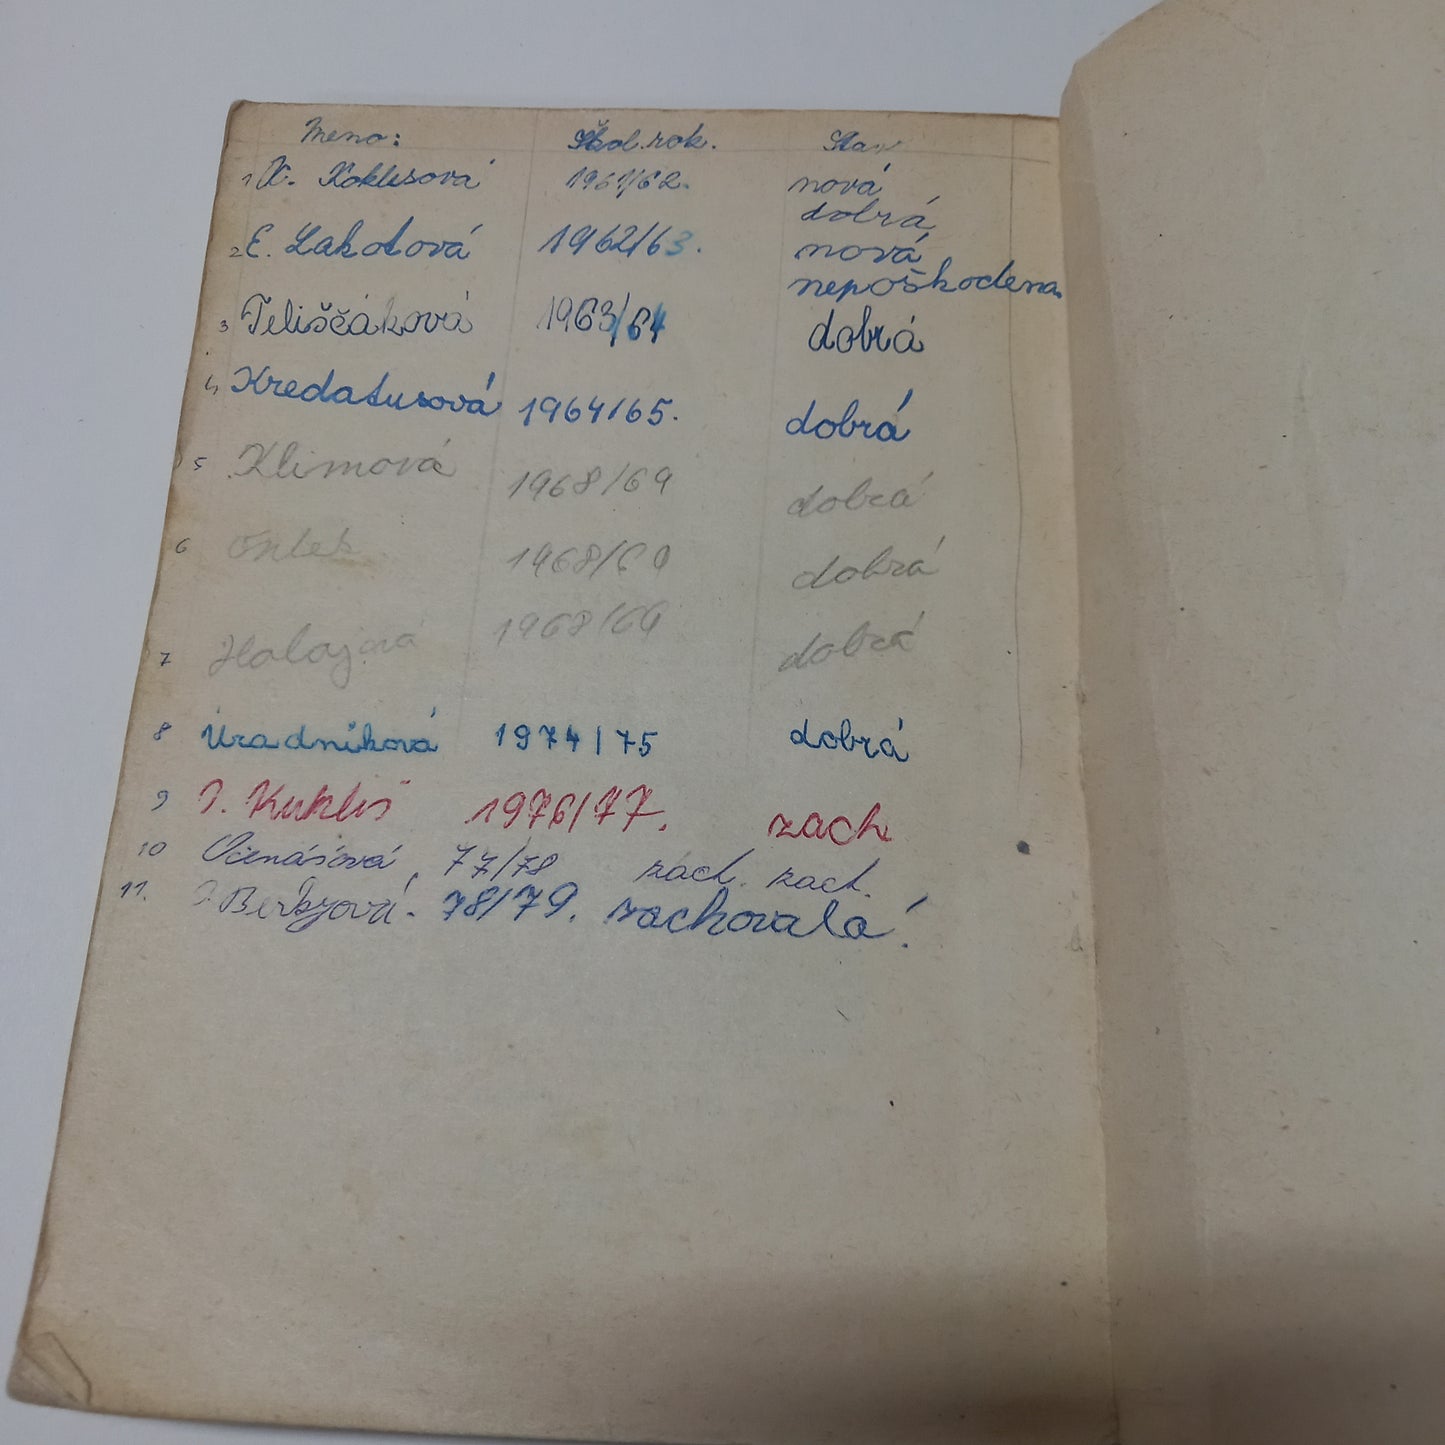 Meno: Škol. rok. Stav
1 K. Koklesová 1961/62. nová
dobrá
2 E. Lakotová 1962/63. nová
nepoškodena
3 Teliščáková 1963/64 dobrá
4 Kredatusová 1964/65. dobrá
5 Klimová 1968/69 dobrá
6 1968/69 dobrá
7 1968/69 dobrá
8 Úradníková 1974/75 dobrá
9 J. Kukliš 1976/77. zach
10 Očenášová, 77/78 zach. zach.
11. Berkyová. 78/79. zachovalá!